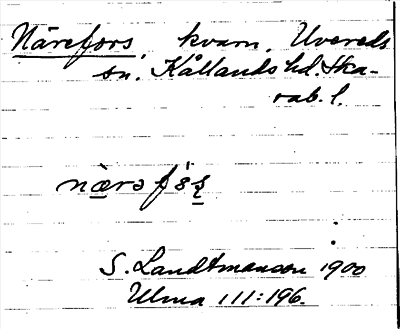 Närefors, kvarn, Uvereds
sn. Kållands hd. Ska-
rab. l.
S. Landtmanson 1900
Ulma 111:196.